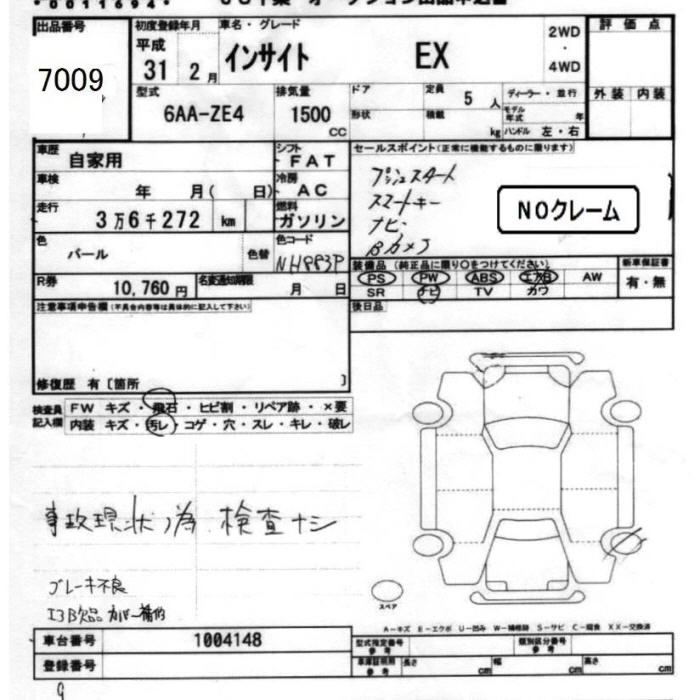 出品番号 7009
初度登録年月 平成 31 2月
車名・グレード インサイト EX
2WD ・ 4WD
評価点
外装 内装
型式 6AA-ZE4
排気量 1500 CC
ドア 形状
定員 5 人
積載 kg
ディーラー・並行
モデル年式 年
ハンドル 左・右
車歴 自家用
シフト FAT
車検 年 月( 日)
冷房 AC
走行 3万6千272 km
燃料 ガソリン
色 パール 色替
色コード NH883P
R券 10,760円
名変通知期限 月 日
セールスポイント(正常に機能するものに限ります)
プッシュスタート
スマートキー
ナビ
Bカメラ
NOクレーム
装備品 (純正品に限り○をつけてください)
PS PW ABS エアB AW
SR ナビ TV カワ
新車保証書 有・無
後日品
注意事項申告欄(不具合内容等は具体的に記入して下さい)
修復歴 有〔箇所 〕
検査員記入欄
FW キズ・飛石・ヒビ割・リペア跡・×要
内装 キズ・汚レ・コゲ・穴・スレ・キレ・破レ
事故現状ノ為 検査ナシ
ブレーキ不良
スペア
A-キズ E-エクボ U-凹み W-補修跡 S-サビ C-腐食 XX-交換済
車台番号 1004148
登録番号
型式指定番号 参考
類別区分番号 参考
車庫証明用 参考 長さ cm 幅 cm 高さ cm